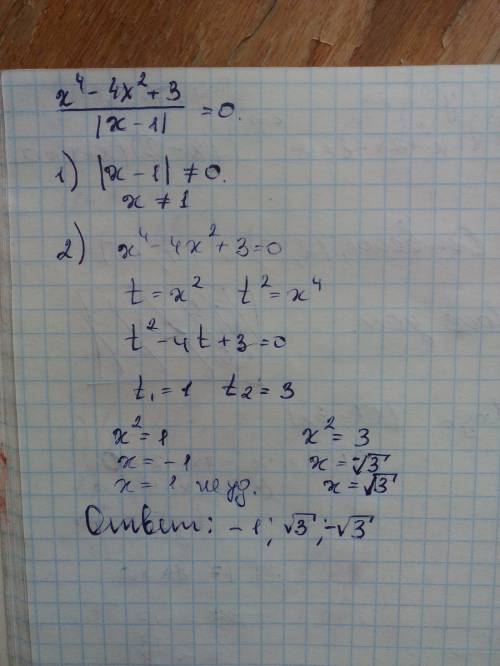 x⁴ - 4x² + 3 / |x - 1| = 0.
1) |x - 1| ≠ 0.
x ≠ 1
2) x⁴ - 4x² + 3 = 0
t = x² t² = x⁴
t² - 4t + 3 = 0
t₁ = 1 t₂ = 3
x² = 1 x² = 3
x = -1 x = -√3
x = 1 не уд. x = √3
Ответ: -1; √3; -√3